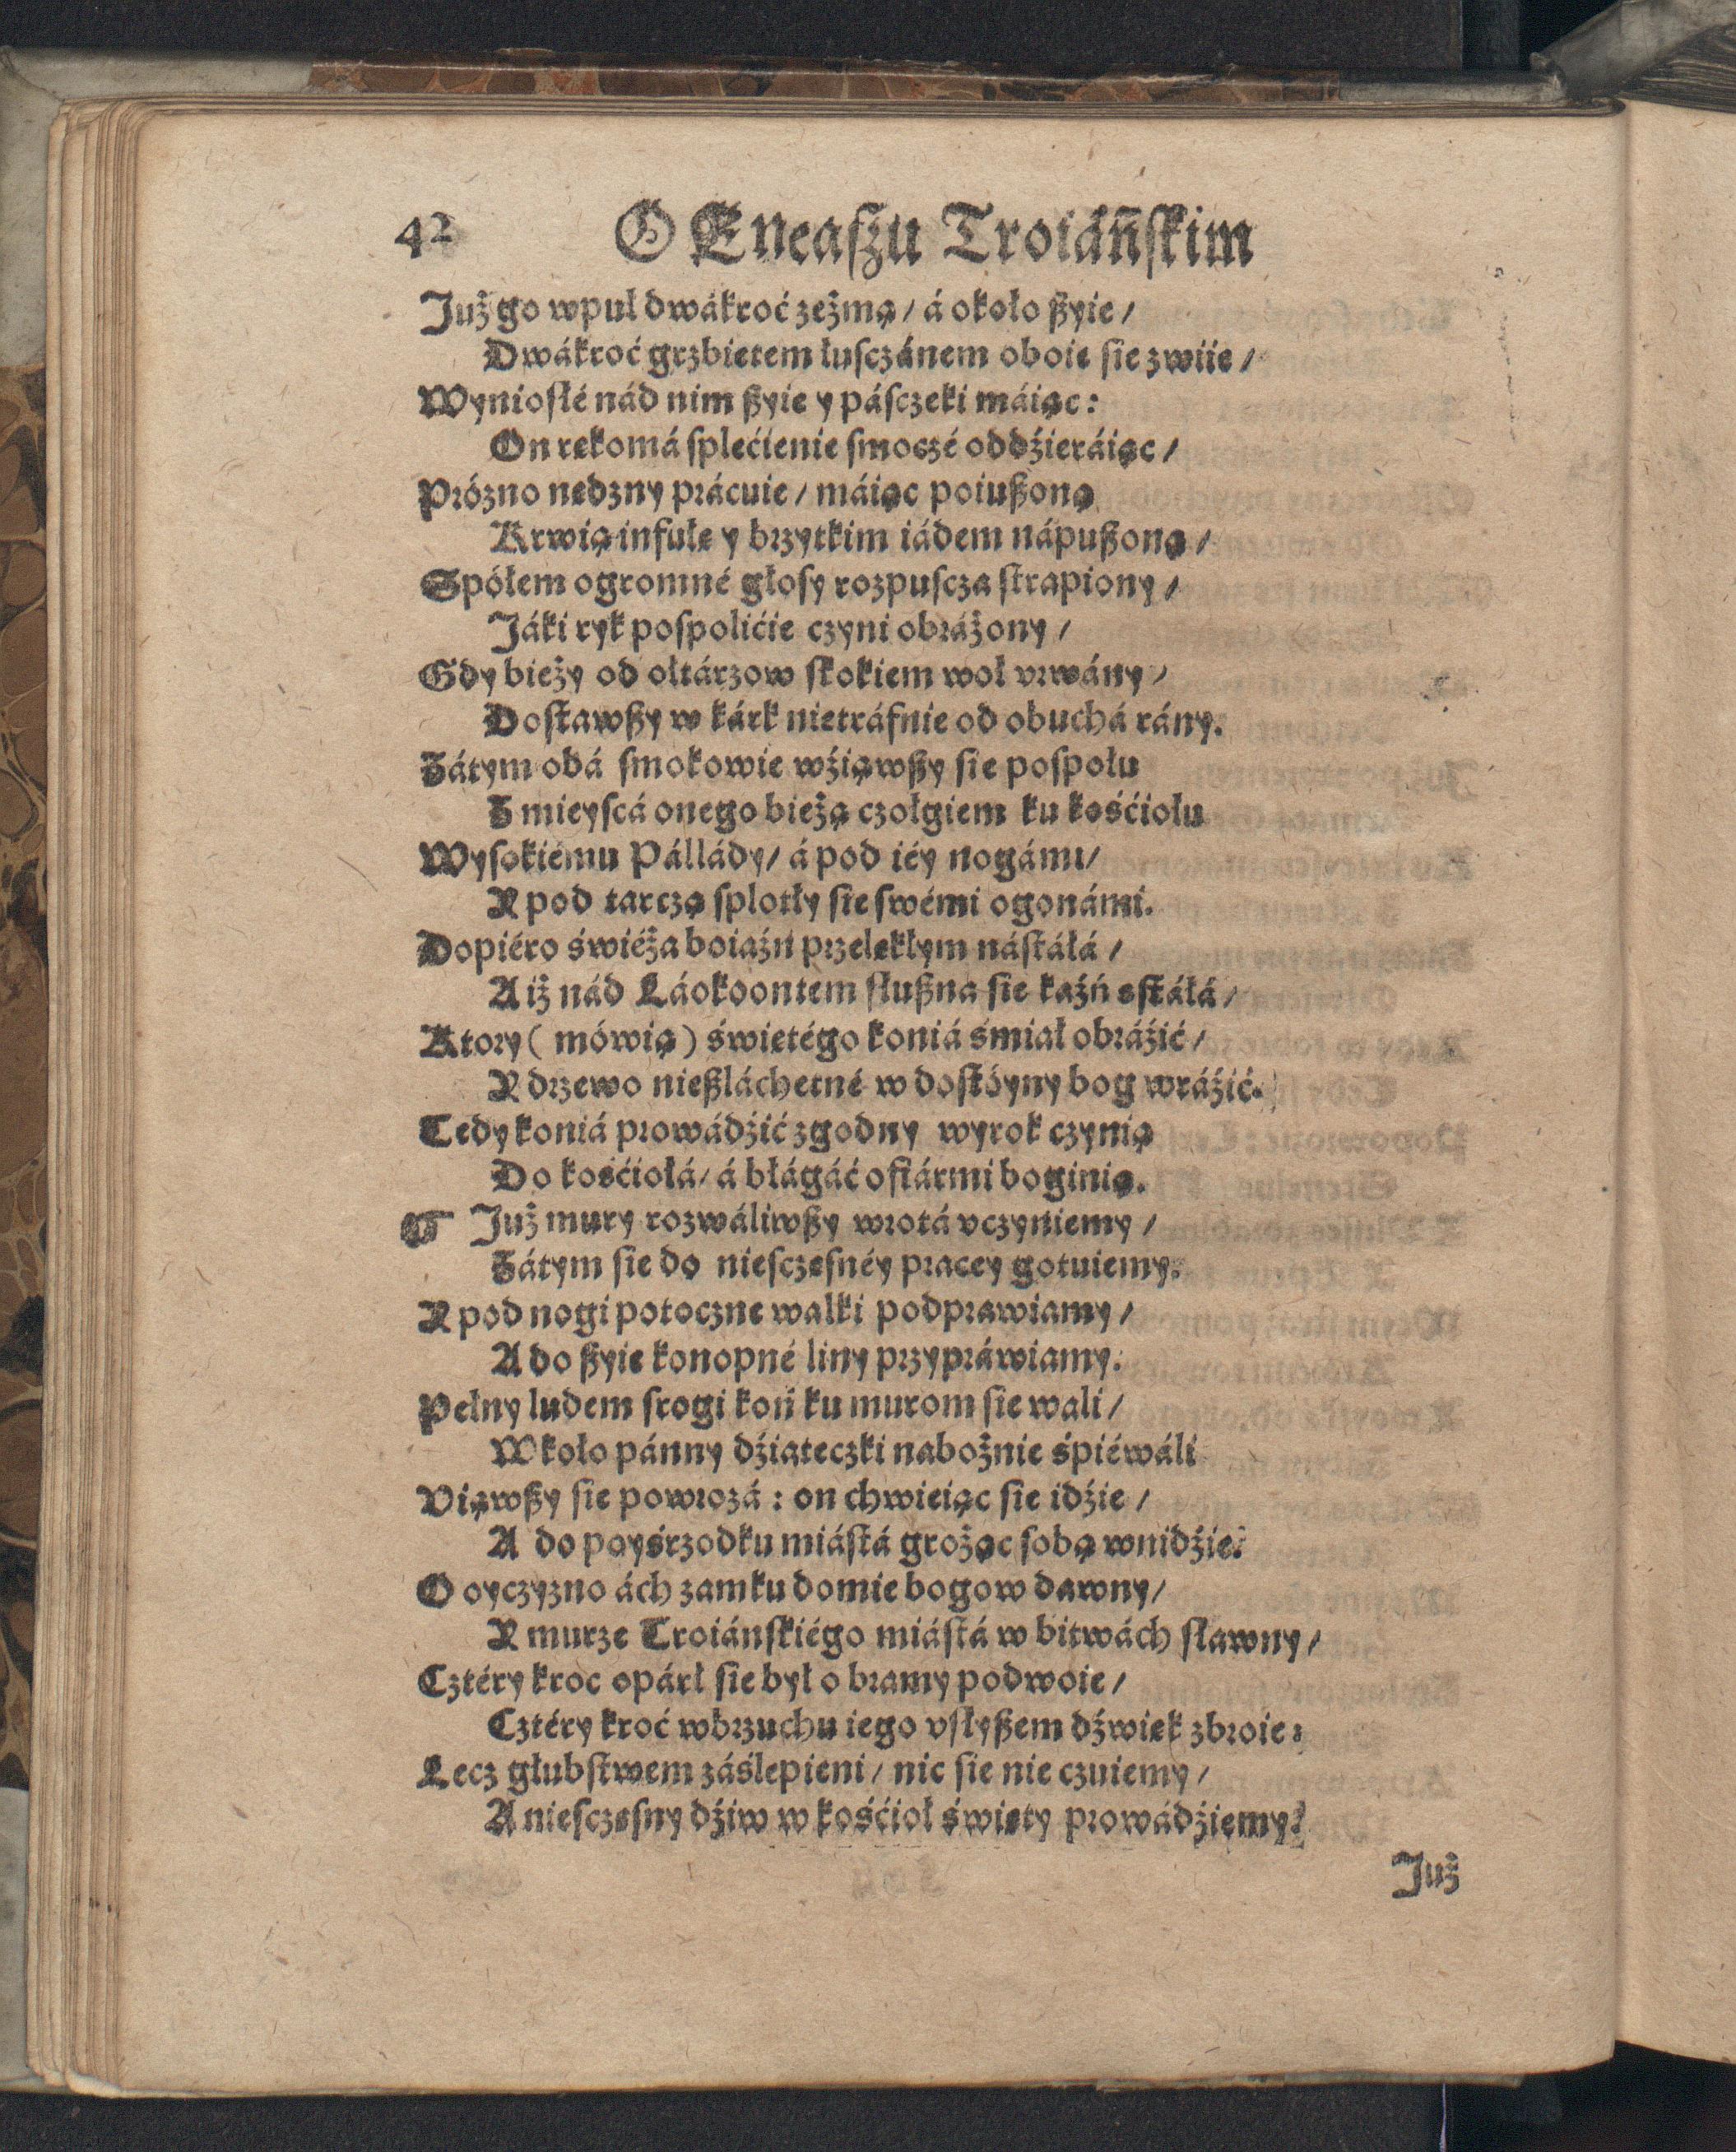 42 O Eneaszu Troiáńskim
Już go wpuł dwákroć zeżmą / á około ßyie /
Dwákroć grzbietem łusczánem oboie sie zwiie /
Wyniosłé nád nim ßyie y pásczeki máiąc:
On rękomá splećienie smoczé oddźieráiąc /
Prózno nędzny prácuie / máiąc poiußoną
Krwią infułę y brzytkim iádem nápußoną /
Spółem ogromné głosy rozpuscza strapiony /
Jáki ryk pospolićie czyni obráżony /
Gdy bieży od ołtárzow skokiem woł vrwány /
Dostawßy w kárk nietráfnie od obuchá rány.
Zátym obá smokowie wźiąwßy sie pospołu
Z mieyscá onego bieżą czołgiem ku kośćiołu
Wysokiému Pállády / á pod iéy nogámi /
Y pod tarczą splotły sie swémi ogonámi.
Dopiéro świéża boiaźń przelękłym nástáłá /
A iż nád Láokoontem słußna sie kaźń sstáłá /
Ktory ( mówią ) świętégo koniá śmiał obráźić /
Y drzewo nießláchetné w dostóyny bog wráźić.
Tedy koniá prowádźić zgodny wyrok czynią
Do kośćiołá / á błágáć ofiármi boginią.
Już mury rozwáliwßy wrotá vczyniemy /
Zátym sie do niesczęsnéy pracey gotuiemy.
Y pod nogi potoczne walki podprawiamy /
A do ßyie konopné liny przypráwiamy.
Pełny ludem srogi koń ku murom sie wali /
Wkoło pánny dźiateczki nabożnie śpiéwáli
Viąwßy sie powrozá : on chwieiąc sie idźie /
A do pośrzodku miástá grożąc sobą wnidźie.
O oyczyzno ách zamku domie bogow dawny /
Y murze Troiánskiégo miástá w bitwách sławny /
Cztéry kroc opárł sie był o bramy podwoie /
Cztéry kroć wbrzuchu iego vsłyßem dźwięk zbroie:
Lecz głubstwem záślepieni / nic sie nie czuiemy /
A niesczęsny dźiw w kośćioł święty prowádźiemy?
Już